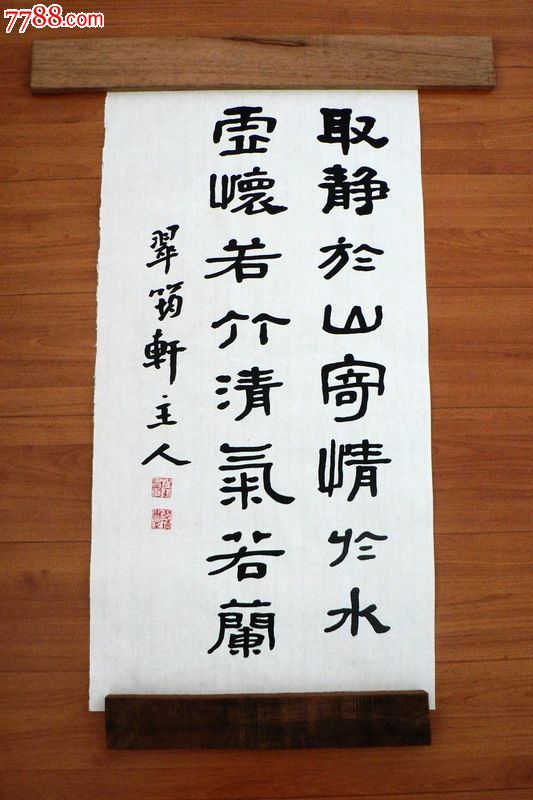 7788.com
取静於山寄情於水
虚懷若竹清氣若蘭
翠筠軒主人